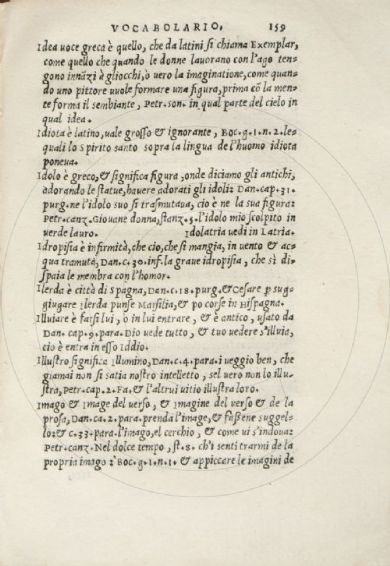 VOCABOLARIO. 159
Idea uoce greca è quello, che da latini si chiama Exemplar,
come quello che quando le donne lauorano con l'ago ten-
gono innāzi è gliocchi, ò uero la imaginatione, come quan-
do uno pittore uuole formare una figura, prima cō la men-
te forma il sembiante, Petr. son. in qual parte del cielo in
qual idea.
Idiota è latino, uale grosso & ignorante, Boc. g. 1. n. 2. le-
quali lo spirito santo sopra la lingua de l'huomo idiota
poneua.
Idolo è greco, & significa figura, onde diciamo gli antichi,
adorando le statue, hauere adorati gli idoli: Dan. cap. 31.
purg. ne l'idolo suo si trasmutaua, cio è ne la sua figura:
Petr. canz. Giouane donna, stanz. 5. l'idolo mio scolpito in
uerde lauro. Idolatria uedi in Latria.
Idropisia è infirmità, che cio, che si mangia, in uento & ac-
qua tramuta, Dan. c. 30. inf. la graue idropisia, che sì di-
spaia le membra con l'homor.
Ilerda è città di Spagna, Dan. c. 18. purg. & Cesare p sug-
giugare Ilerda punse Marsilia, & po corse in Hispagna.
Illuiare è farsi lui, ò in lui entrare, & è antico, usato da
Dan. cap. 9. para. Dio uede tutto, & tuo uedere s'illuia,
cio è entra in esso Iddio.
Illustro significa illumino, Dan. c. 4. para. i ueggio ben, che
giamai non si satia nostro intelletto, sel uero non lo illu-
stra, Petr. cap. 2. Fa. & l'altrui uitio illustra loro.
Imago & Image del uerso, & imagine del uerso & de la
prosa, Dan. ca. 2. para. prenda l'image, & fassene suggel-
lo: & c. 33. para. l'imago, el cerchio, & come ui s'indoua:
Petr. canz. Nel dolce tempo, st. 8. ch'i senti trarmi de la
propria imago: Boc. g. 1. n. 1. & appiccare le imagini de